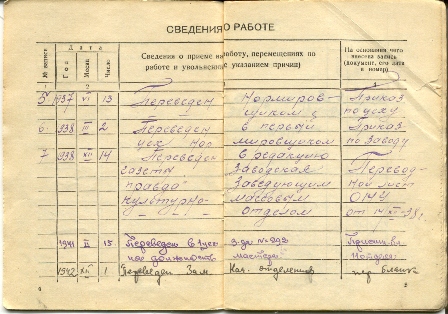 СВЕДЕНИЯ О РАБОТЕ
№ записи
Дата
Год
Месяц
Число
Сведения о приеме на работу, перемещениях по работе и увольнении (с указанием причин)
На основании чего внесена запись (документ, его дата и номер)
1
2
3
5 1937 VI 13 Переведен Нормиров- Приказ
щиком с по цеху
6 1938 III 2 Переведен в первый Приказ
цех Нор мировщиком по заводу
7 1938 XII 14 Переведен в редакцию Перевод-
газеты Заводская
правда" Заведующим ной лист
культурно- массовым ОНУ
отделом от 14 XII-38г.
1941 II 15 Переведен в з-да № 292
ное должность мастера
1942 XII 1 Переведен Зам. Нач. отделения
4
5